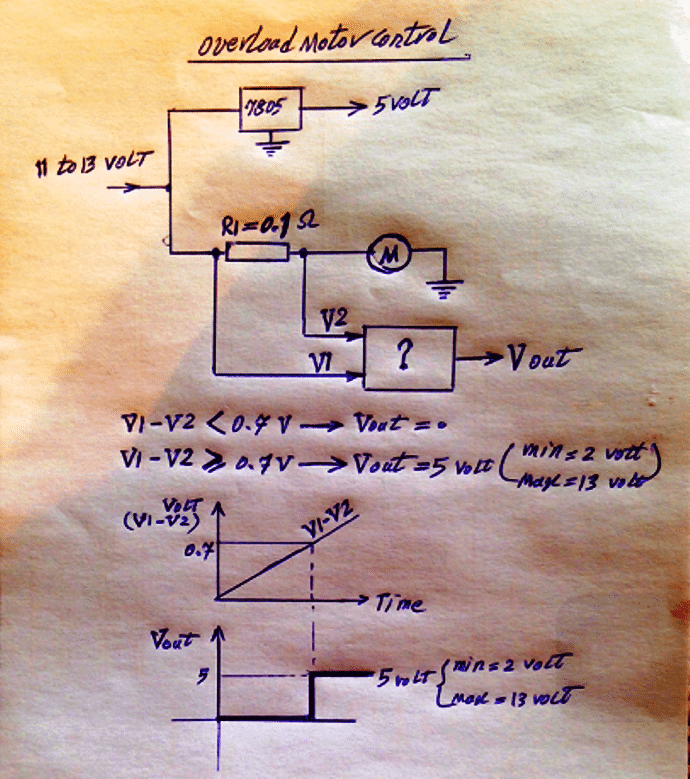 Overload Motor Control
7805
5 VOLT
11 to 13 VOLT
R1=0.1 Ω
M
V2
?
V1
Vout
V1-V2 < 0.7 V → Vout = 0
V1-V2 ⩾ 0.7V → Vout = 5 volt (min = 2 volt
max = 13 volt)
Volt
(V1-V2)
V1-V2
0.7
Time
Vout
5
5 volt { min = 2 volt
max = 13 volt